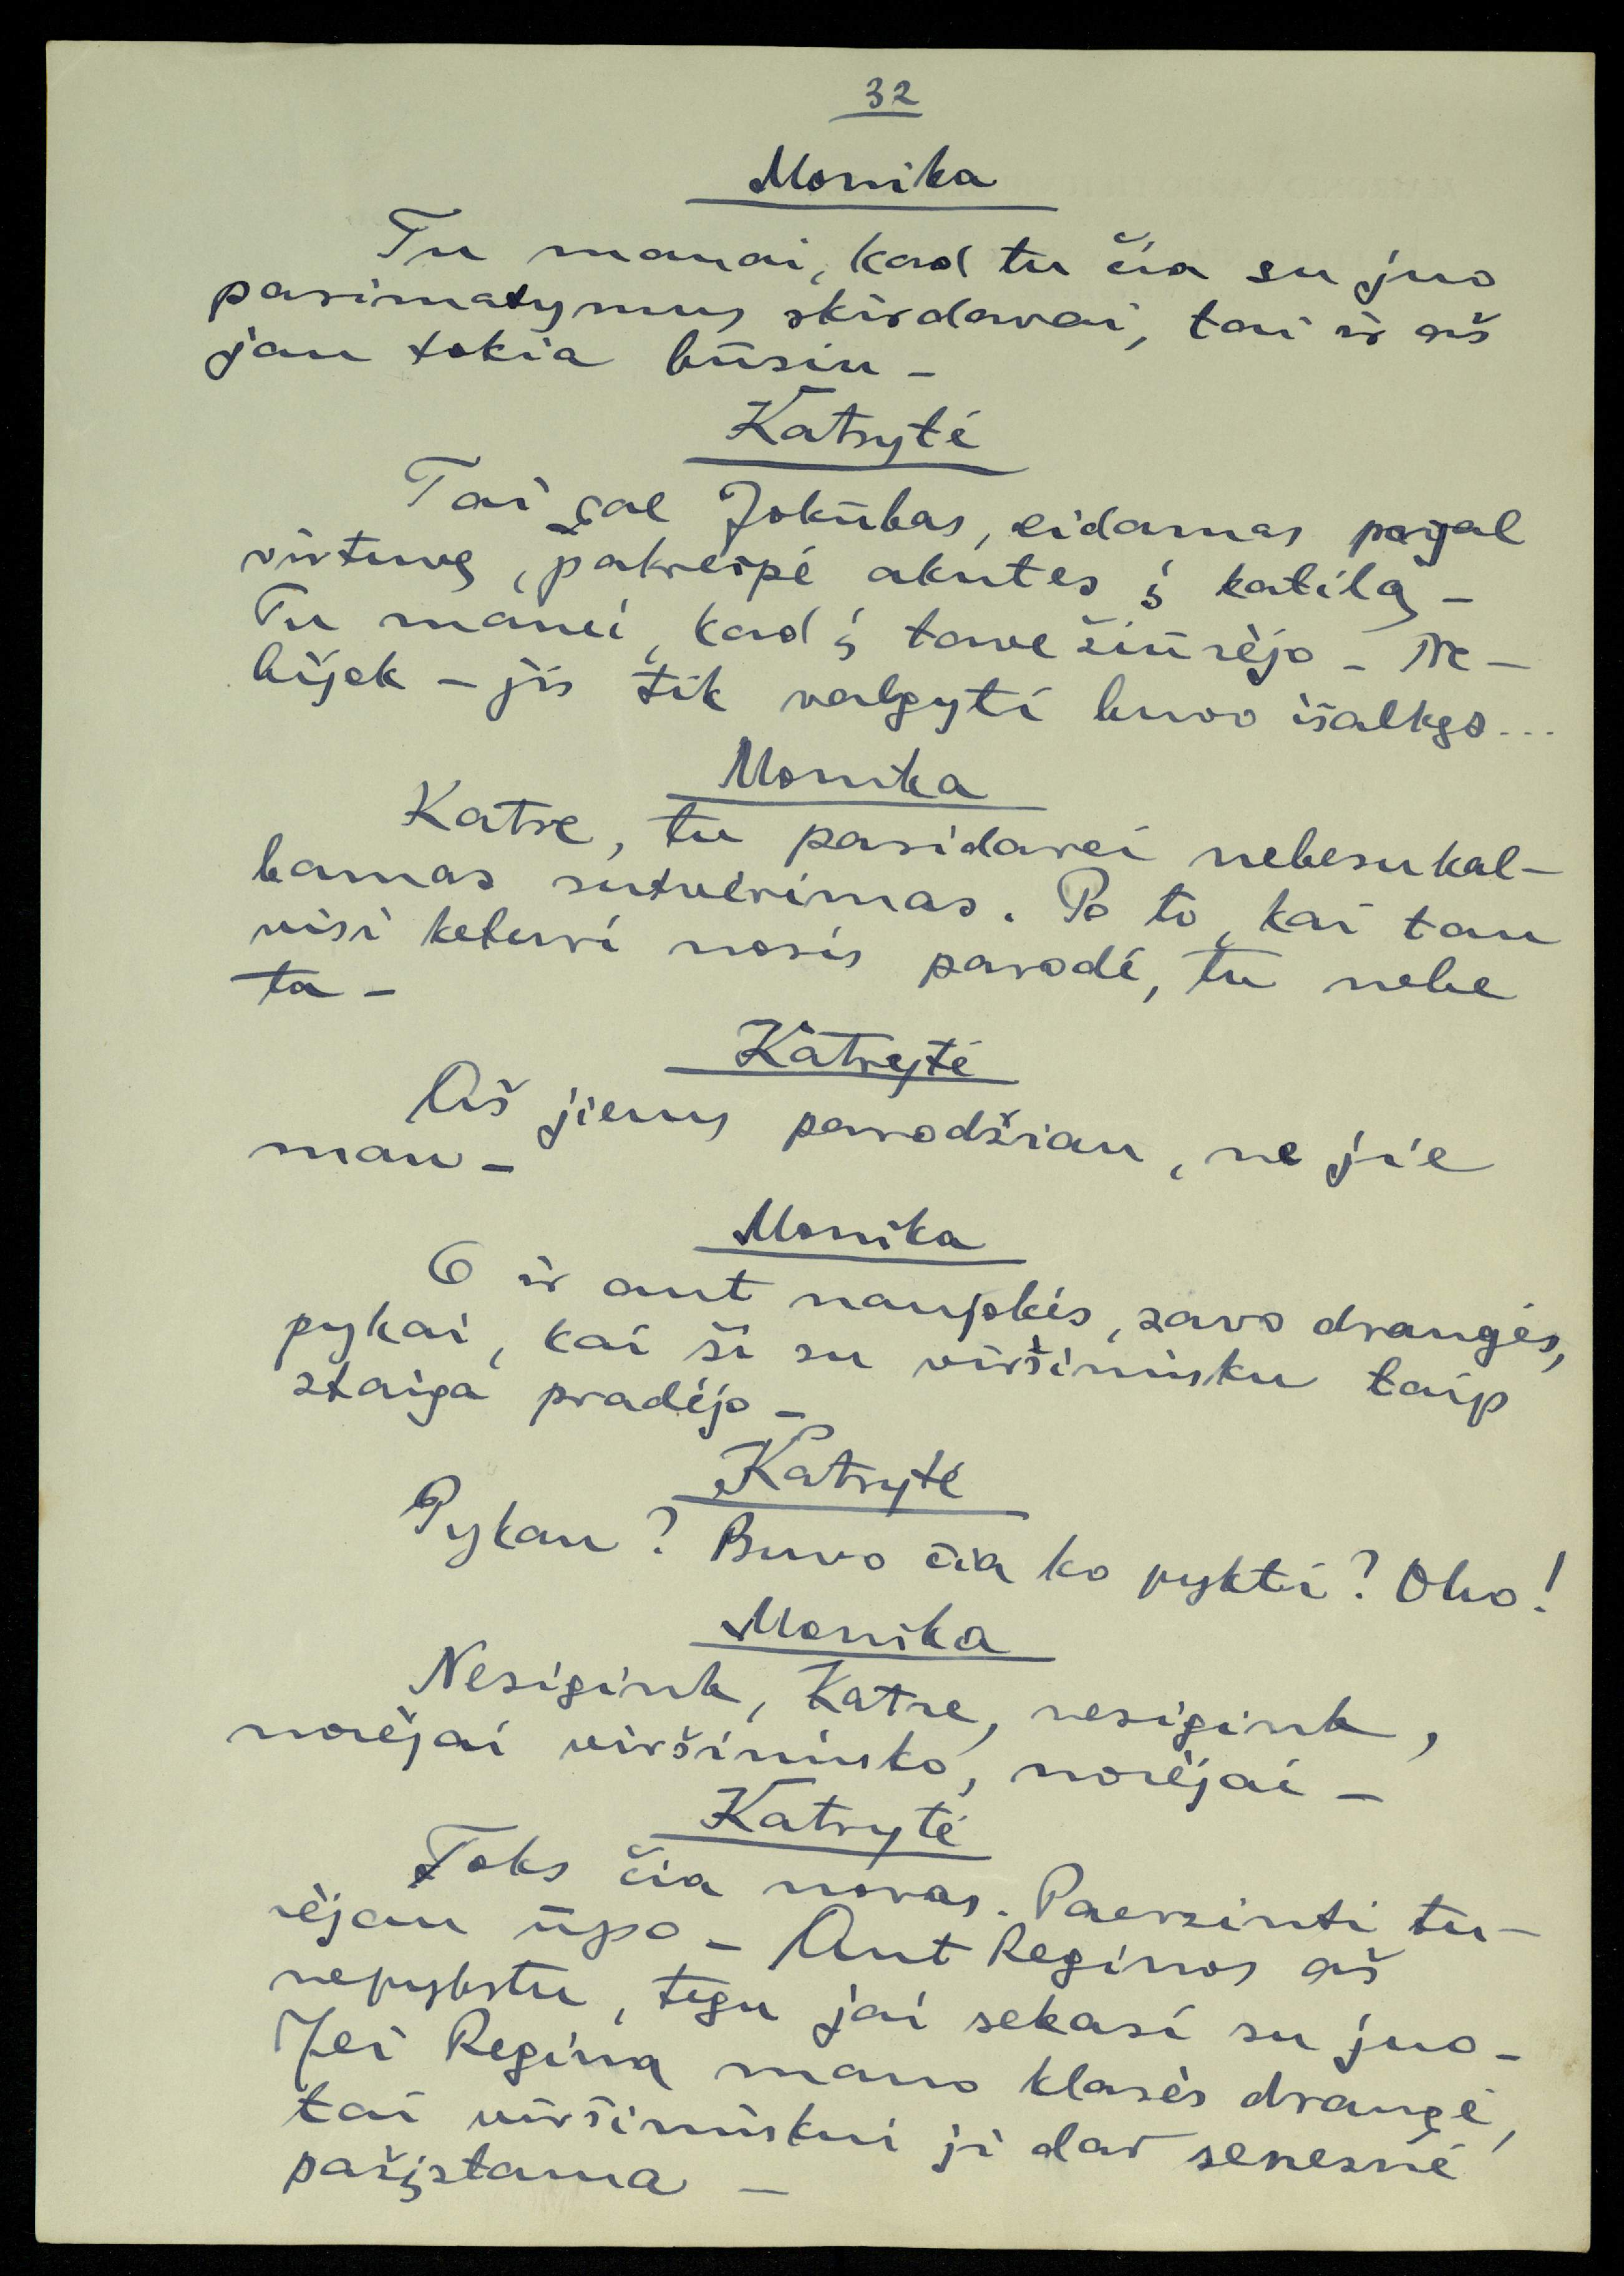 32
Monika
Tu manai, kad tu čia su juo
pasimatymus skirdavai, tai ir aš
jau tokia būsiu –
Katrytė
Tai gal Jokūbas, eidamas pagal
virtuvę, pakreipė akutes į katilą –
Tu manei, kad į tave žiūrėjo – Ne-
bijok – jis tik valgyti buvo išalkęs...
Monika
Katre, tu pasidarei nebesukal-
bamas sutvėrimas. Po to, kai tau
visi keturi nosis parodė, tu nebe
ta –
Katrytė
Aš jiems parodžiau, ne jie
man –
Monika
O ir ant naujokės, savo draugės,
pykai, kai ši su viršininku taip
staiga pradėjo –
Katrytė
Pykau? Buvo čia ko pykti? Oho!
Monika
Nesigink, Katre, nesigink,
norėjai viršininko, norėjai –
Katrytė
Toks čia noras. Paerzinti tu-
rėjau ūpo – Ant Reginos aš
nepykstu, tegu jai sekasi su juo –
Jei Regina mano klasės draugė,
tai viršininkui ji dar senesnė
pažįstama –